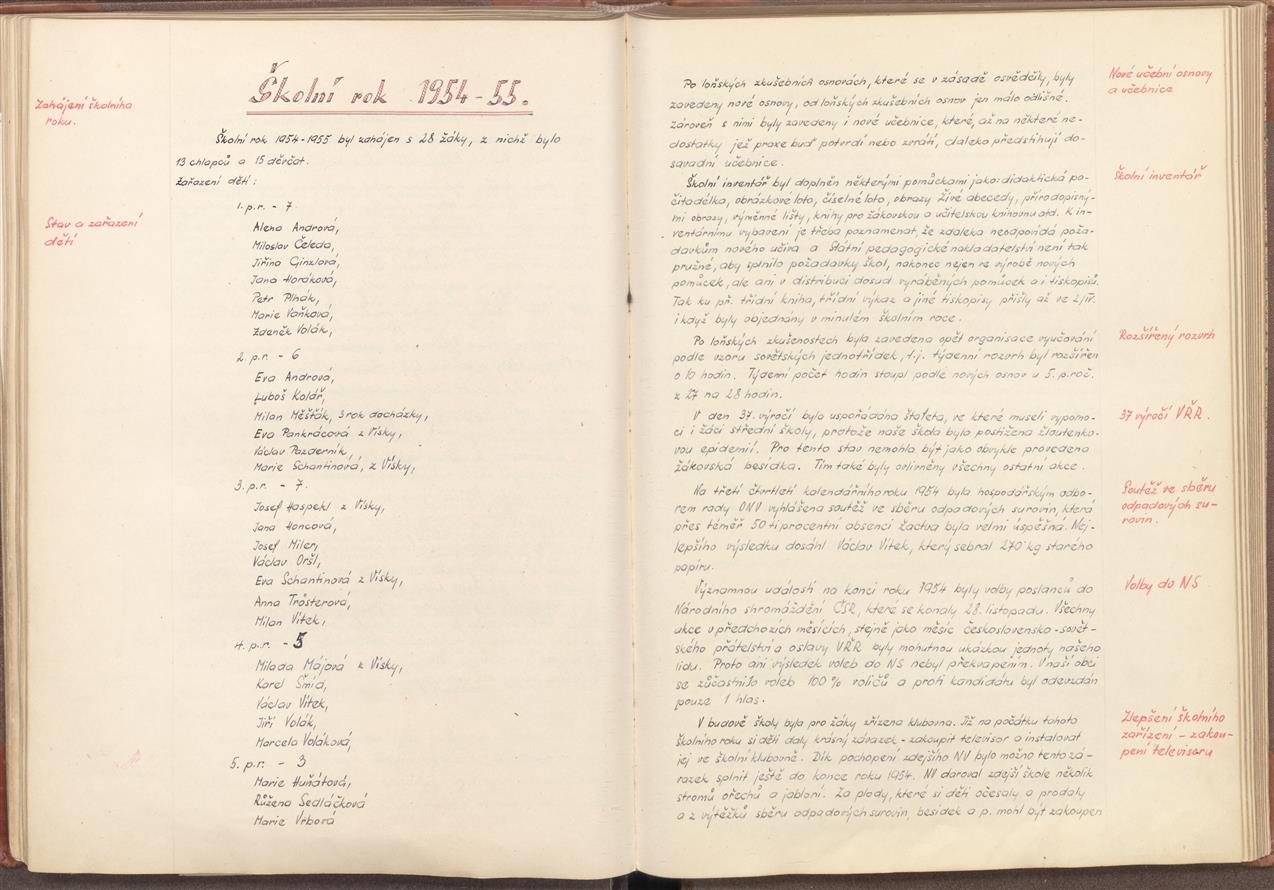 Školní rok 1954-55.
Zahájení školního
roku.
Školní rok 1954-1955 byl zahájen s 28 žáky, z nichž bylo
13 chlapců a 15 děvčat.
Zařazení dětí:
Stav a zařazení
dětí
1. p.r. - 7
Alena Andrová,
Miloslav Čeleda,
Jiřina Ginzlová,
Jana Horáková,
Petr Plhák,
Marie Vaňková,
Zdeněk Volák,
2. p.r. - 6
Eva Andrová,
Luboš Kolář,
Milan Měšťák, 3 rok docházky,
Eva Pankrácová z Vísky,
Václav Pazderník,
Marie Schantinová, z Vísky,
3. p.r. - 7.
Josef Haspekl z Vísky,
Jana Honcová,
Josef Miler,
Václav Oršl,
Eva Schantinová z Vísky,
Anna Trösterová,
Milan Vítek,
4. p.r. - 5
Milada Májová z Vísky,
Karel Šmíd,
Václav Vítek,
Jiří Volák,
Marcela Voláková,
5. p.r. - 3
Marie Huňátová,
Růžena Sedláčková
Marie Vrbová
Po loňských zkušebních osnovách, které se v zásadě osvědčily, byly
zavedeny nové osnovy, od loňských zkušebních osnov jen málo odlišné.
Zároveň s nimi byly zavedeny i nové učebnice, které, až na některé ne-
dostatky jež praxe buď potvrdí nebo zvrátí, daleko předstihují do-
savadní učebnice.
Nové učební osnovy
a učebnice
Školní inventář byl doplněn některými pomůckami jako: didaktická po-
čítadélka, obrázkové loto, číselné loto, obrazy Živé abecedy, přírodopisný-
mi obrazy, výměnné lišty, knihy pro žákovskou a učitelskou knihovnu atd. K in-
ventárnímu vybavení je třeba poznamenat, že zdaleka neodpovídá poža-
davkům nového učiva a Státní pedagogické nakladatelství není tak
pružné, aby splnilo požadavky škol, nakonec nejen ve výrobě nových
pomůcek, ale ani v distribuci dosud vyráběných pomůcek a i tiskopisů.
Tak ku př. třídní kniha, třídní výkaz a jiné tiskopisy přišly až ve 2/IV.
i když byly objednány v minulém školním roce.
Školní inventář
Po loňských zkušenostech byla zavedena opět organisace vyučování
podle vzoru sovětských jednotřídek, t.j. týdenní rozvrh byl rozšířen
o 10 hodin. Týdenní počet hodin stoupl podle nových osnov u 5. p.roč.
z 27 na 28 hodin.
Rozšířený rozvrh
V den 37. výročí byla uspořádána štafeta, ve které museli vypomo-
ci i žáci střední školy, protože naše škola byla postižena žloutenko-
vou epidemií. Pro tento stav nemohla být jako obvykle provedena
žákovská besídka. Tím také byly ovlivněny všechny ostatní akce.
37 výročí VŘR.
Na třetí čtvrtletí kalendářního roku 1954 byla hospodářským odbo-
rem rady ONV vyhlášena soutěž ve sběru odpadových surovin, která
přes téměř 50 ti procentní absenci žactva byla velmi úspěšná. Nej-
lepšího výsledku dosáhl Václav Vítek, který sebral 270 kg starého
papíru.
Soutěž ve sběru
odpadových su-
rovin.
Významnou událostí na konci roku 1954 byly volby poslanců do
Národního shromáždění ČSR, které se konaly 28. listopadu. Všechny
akce v předchozích měsících, stejně jako měsíc československo-sovět-
ského přátelství a oslavy VŘR byly mohutnou ukázkou jednoty našeho
lidu. Proto ani výsledek voleb do NS nebyl překvapením. V naší obci
se zúčastnilo voleb 100 % voličů a proti kandidátu byl odevzdán
pouze 1 hlas.
Volby do NS
V budově školy byla pro žáky zřízena klubovna. Již na počátku tohoto
školního roku si děti daly krásný závazek - zakoupit televisor a instalovat
jej ve školní klubovně. Dík pochopení zdejšího NV bylo možno tento zá-
vazek splnit ještě do konce roku 1954. NV daroval zdejší škole několik
stromů ořechů a jabloní. Za plody, které si děti očesaly a prodaly
a z výtěžků sběru odpadových surovin, besídek a p. mohl být zakoupen
Zlepšení školního
zařízení - zakou-
pení televisoru